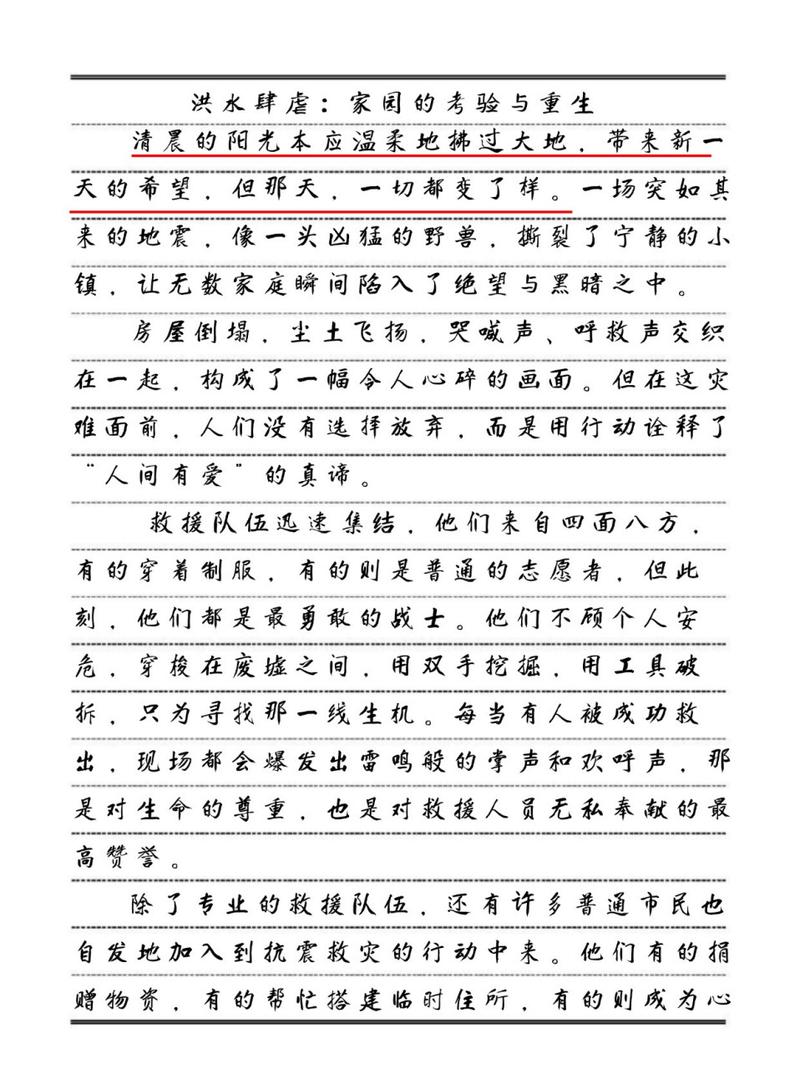 洪水肆虐：家园的考验与重生
清晨的阳光本应温柔地拂过大地，带来新一
天的希望，但那天，一切都变了样。一场突如其
来的地震，像一头凶猛的野兽，撕裂了宁静的小
镇，让无数家庭瞬间陷入了绝望与黑暗之中。
房屋倒塌，尘土飞扬，哭喊声、呼救声交织
在一起，构成了一幅令人心碎的画面。但在这灾
难面前，人们没有选择放弃，而是用行动诠释了
“人间有爱”的真谛。
救援队伍迅速集结，他们来自四面八方，
有的穿着制服，有的则是普通的志愿者，但此
刻，他们都是最勇敢的战士。他们不顾个人安
危，穿梭在废墟之间，用双手挖掘，用工具破
拆，只为寻找那一线生机。每当有人被成功救
出，现场都会爆发出雷鸣般的掌声和欢呼声，那
是对生命的尊重，也是对救援人员无私奉献的最
高赞誉。
除了专业的救援队伍，还有许多普通市民也
自发地加入到抗震救灾的行动中来。他们有的捐
赠物资，有的帮忙搭建临时住所，有的则成为心